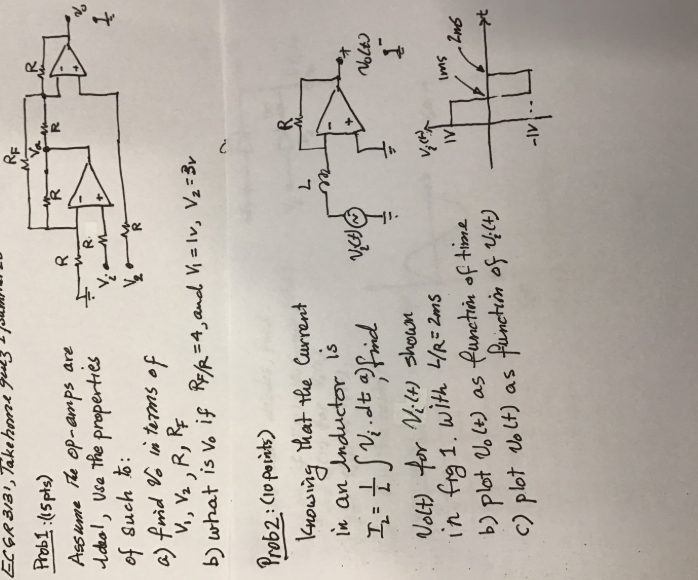 ECGR 3131, Take home quiz
Prob1: (15pts)
Assume The op-amps are
ideal, Use the properties
of such to:
a) find Vo in terms of
V1, V2, R, RF
b) what is Vo if RF/R = 4, and V1 = 1v, V2 = 3v
R
RF
R
Va
R
R
R
R
Vi
V2
Vo
-
+
-
+
Prob2: (10 points)
Knowing that the Current
in an Inductor is
IL = 1/L ∫ Vi. dt a) find
Vo(t) for Vi(t) shown
in fig 1. With L/R = 2ms
b) plot Vo(t) as function of time
c) plot Vo(t) as function of Vi(t)
Vi(t)
L
R
-
+
+
Vo(t)
-
Vi(t)
1V
1ms
2ms
t
-1V